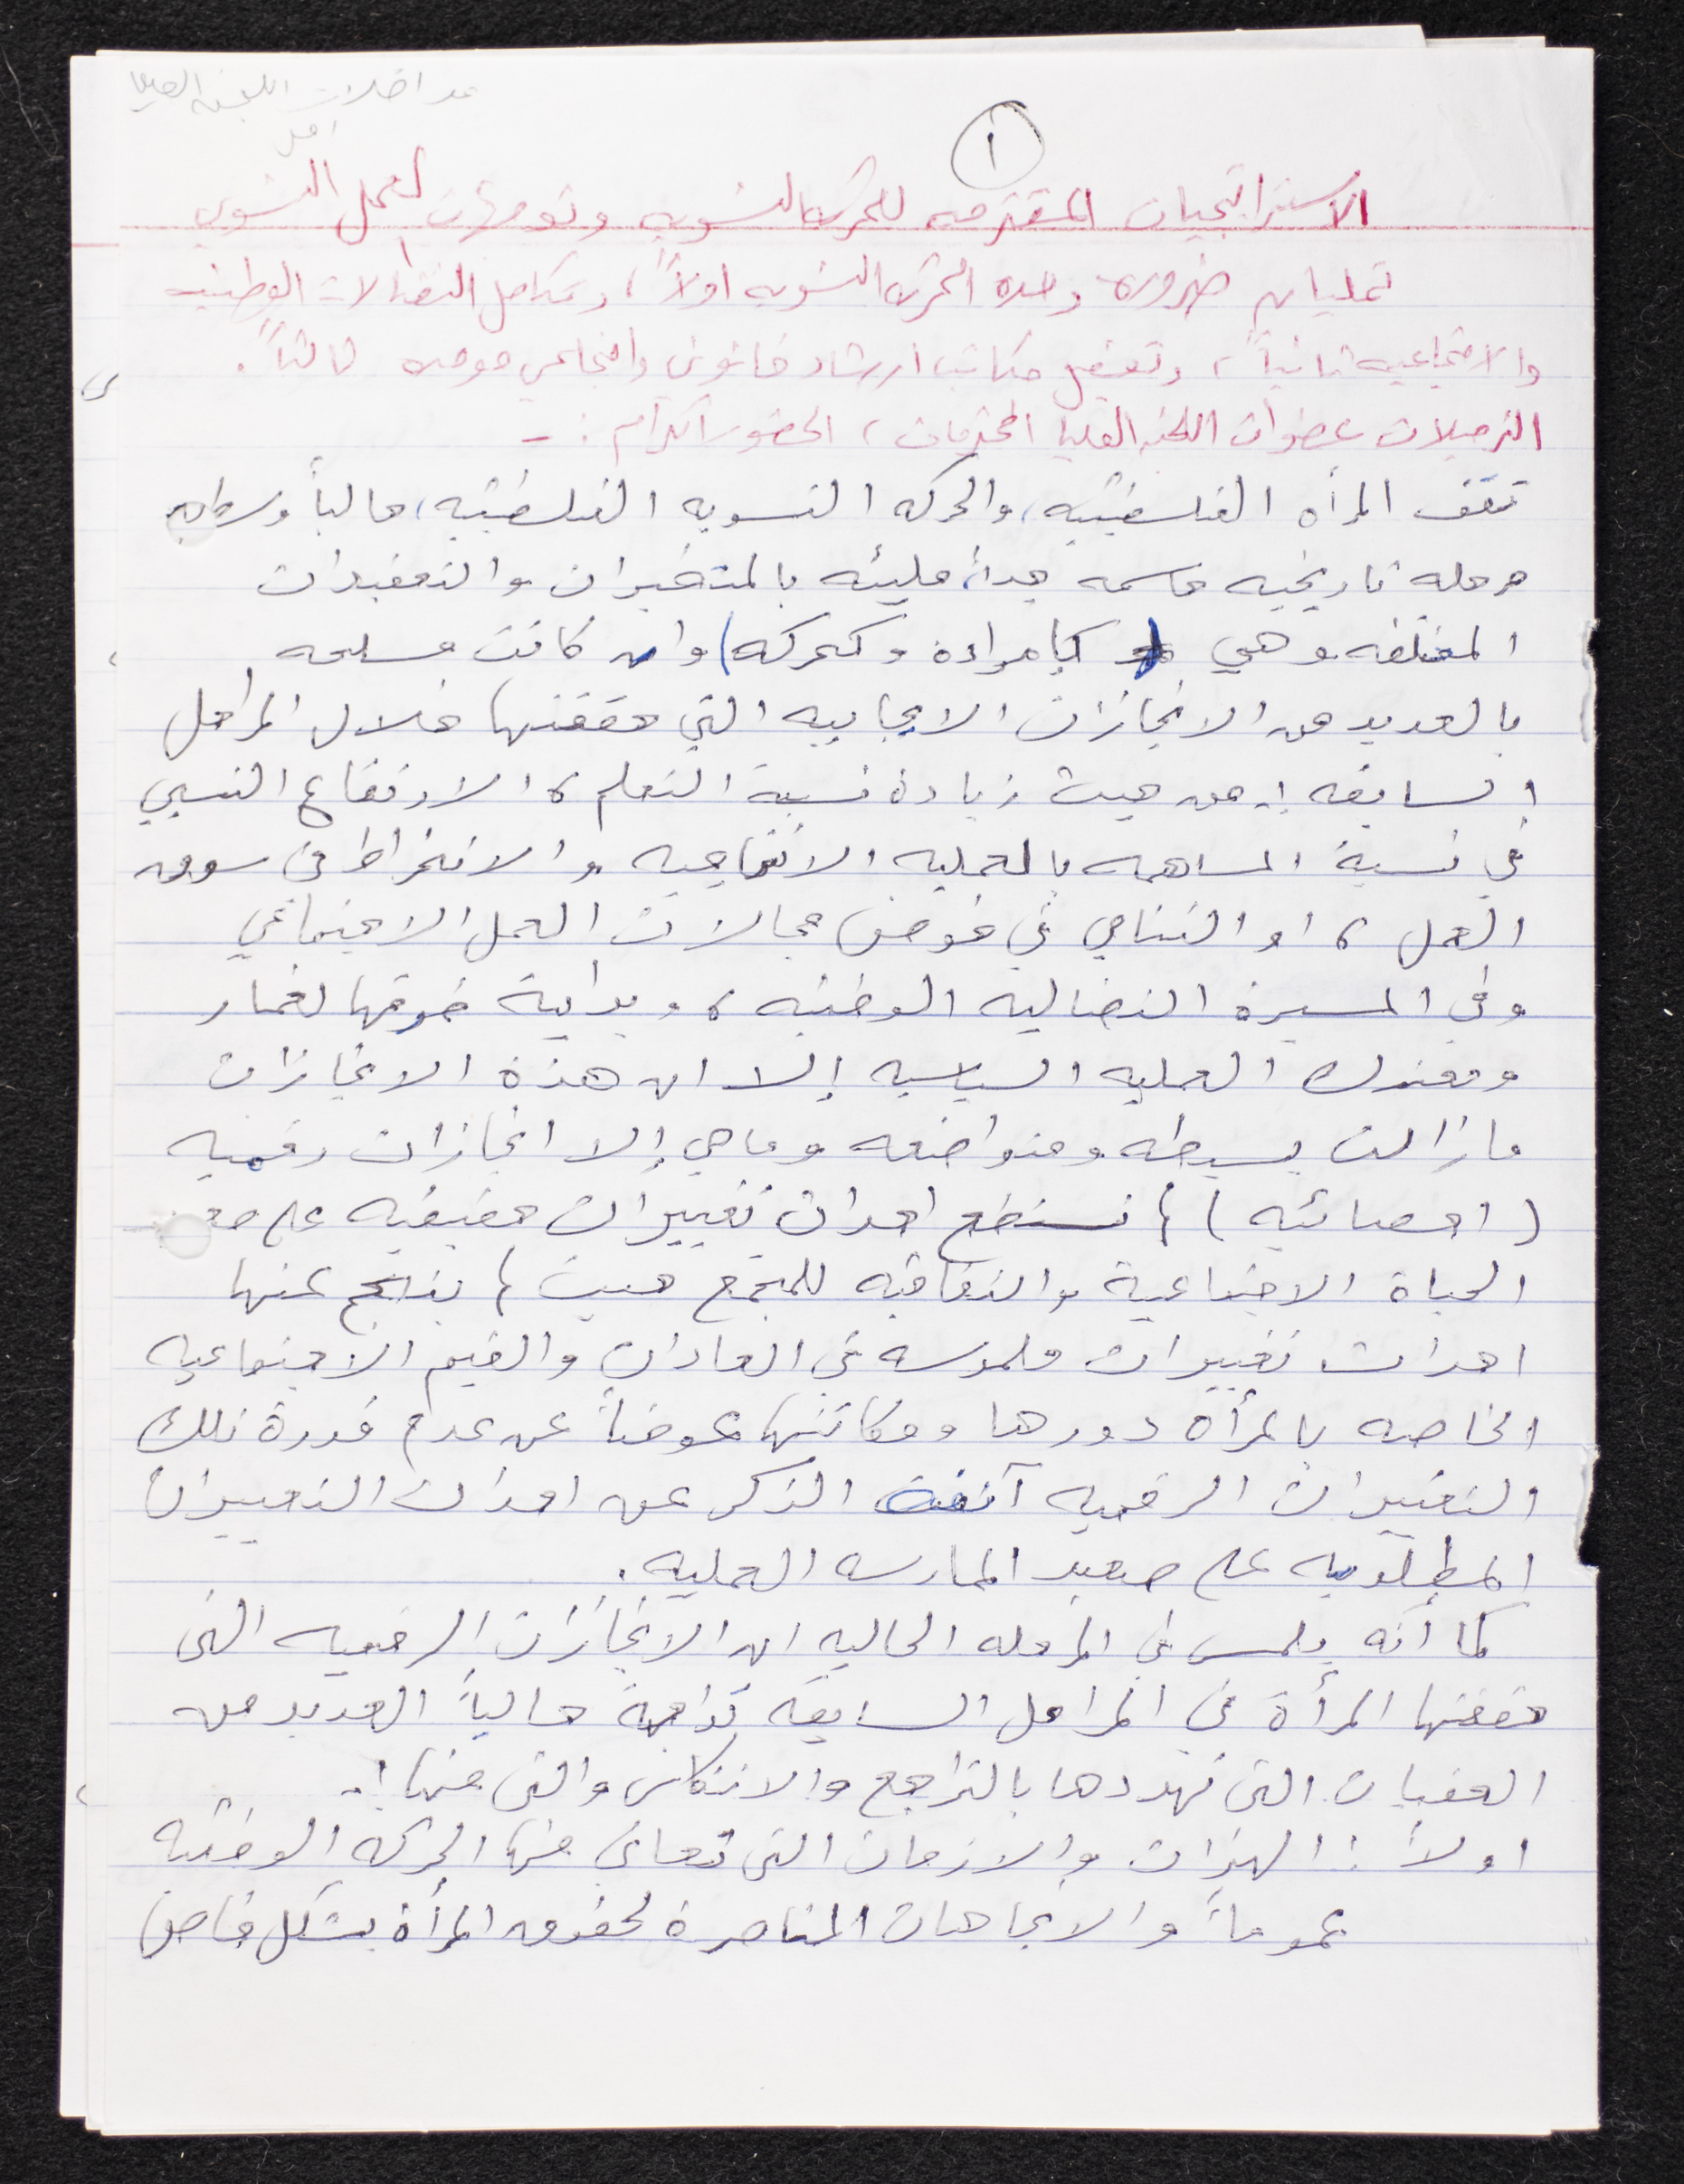 مداخلات اللجنة العليا
١
الاستراتيجيات المقترحه للحركه النسويه وتوجهات العمل النسوي
تمليان ضرورة وحده الحركه النسويه اولاً، وتكامل النضالات الوطنيه
والاجتماعيه ثانياً، وتفعيل مكاتب ارشاد قانوني واجتماعي موحده ثالثاً.
الزميلات عضوات اللجنه العليا المحترمات، الحضور الكرام :-
تقف المرأه الفلسطينيه، والحركه النسويه الفلسطينيه، حالياً وسط
مرحله تاريخيه حاسمه جداً، مليئه بالمتغيرات والتعقيدات
المختلفه وهي (كإمراءة وكحركه) وان كانت مسلحه
بالعديد من الانجازات الايجابيه التي حققتها خلال المراحل
السابقه :- من حيث زيادة نسبة التعلم، الارتفاع النسبي
في نسبة المساهمه بالعمليه الانتاجيه والانخراط في سوق
العمل، او التنامي في خوض مجالات العمل الاجتماعي
وفي المسيرة النضاليه الوطنيه، وبداية خوضها لغمار
ومعترك العمليه السياسيه إلا ان هذه الانجازات
مازالت بسيطه ومتواضعه وما هي إلا انجازات رقميه
(احصائيه) لم تستطع احداث تغييرات حقيقيه على صعيد
الحياة الاجتماعية والثقافيه للمجتمع حيث لم ينتج عنها
احداث تغييرات ملموسه في العادات والقيم الاجتماعيه
الخاصه بالمرأه دورها ومكانتها عوضاً عن عدم قدرة تلك
التغييرات الرقميه آنفة الذكر عن احداث التغييرات
المطلوبه على صعيد الممارسه العمليه.
كما أنه يلمس في المرحله الحاليه ان الانجازات الرقميه التي
حققتها المرأة في المراحل السابقة تواجه حالياً العديد من
العقبات التي تهددها بالتراجع والانتكاس والتي منها :-
اولاً : الهزات والازمات التي تعاني منها الحركه الوطنيه
عموماً والاتجاهات المناصرة لحقوق المرأة بشكل خاص